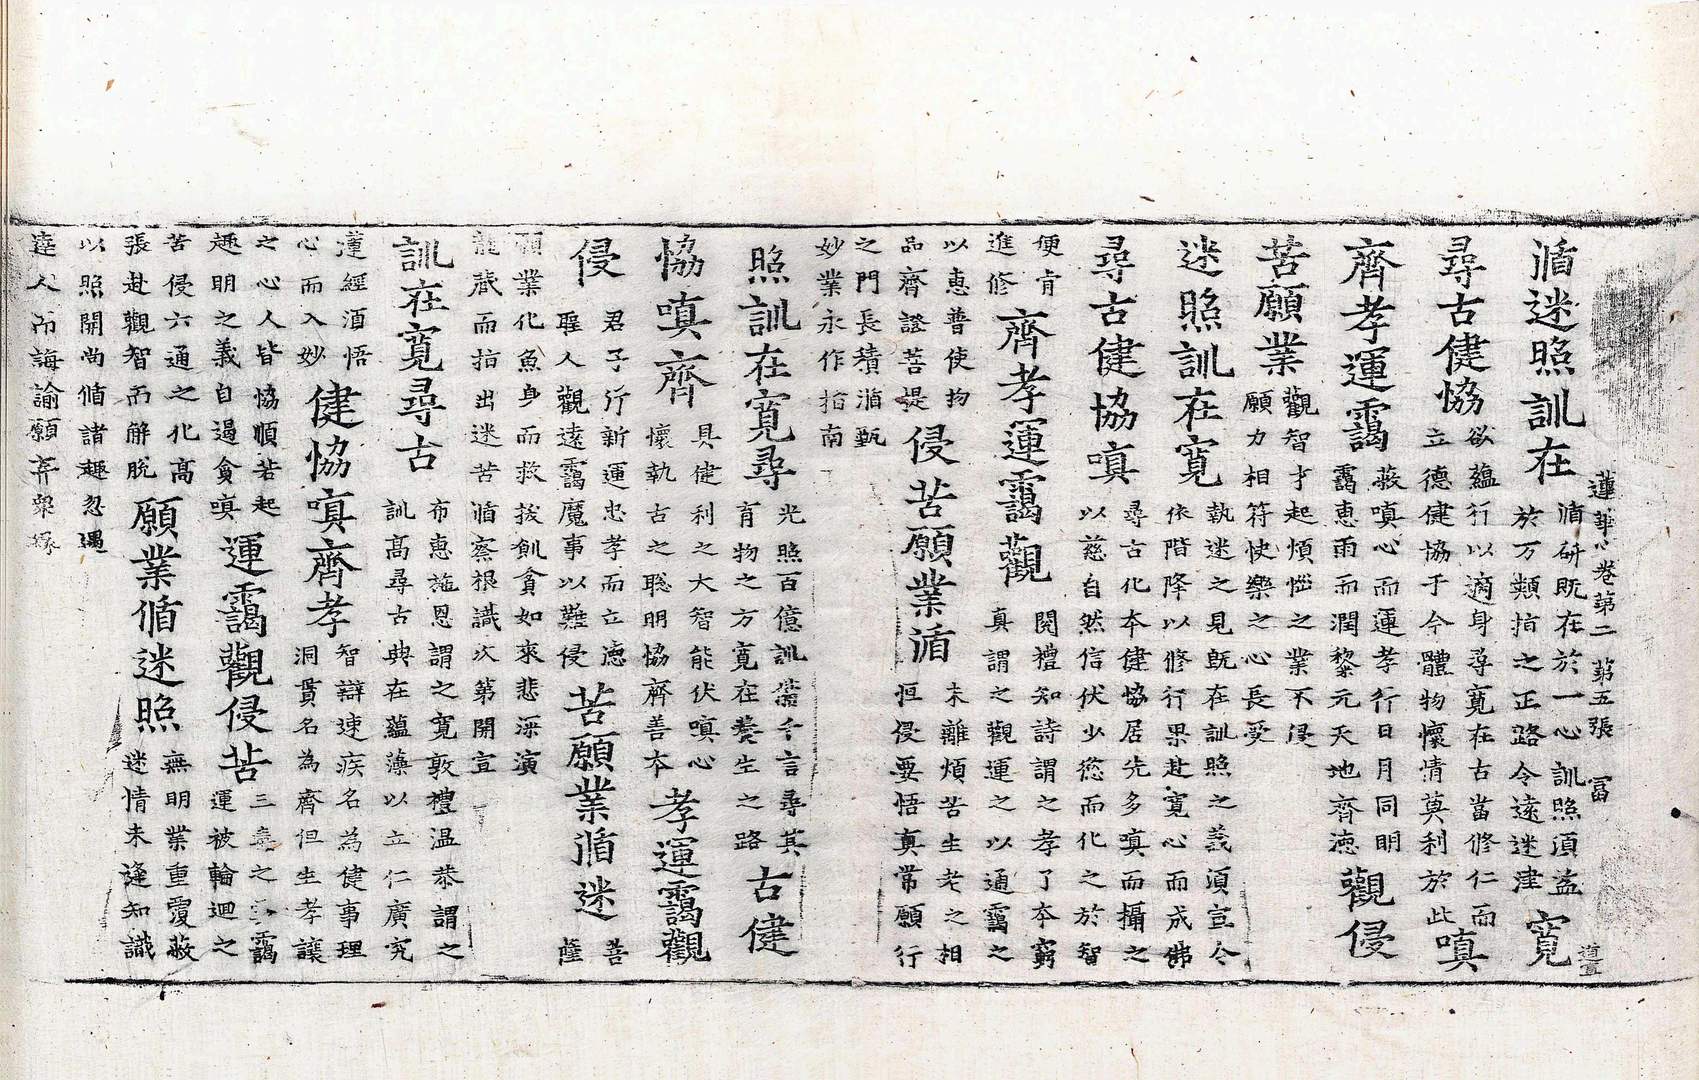 蓮華心卷第二 第五張 冨 道直
循迷照訓在 循研既在於一心訓照須盖 於万類指之正路令遠迷津 寬
尋古健恊 欲蘊行以適身尋寬在古當修仁而 立德健協于今體物懷情莫利於此 嗔
齊孝運靄 蔽嗔心而運孝行日月同明 靄惠雨而潤黎元天地齊德 觀侵
苦願業 觀智才起煩惱之業不侵 願力相符快樂之心長受
迷照訓在寬 執迷之見既在訓照之義須宣令 依階降以修行果赴寬心而成佛
尋古健協嗔 尋古化本健協居先多嗔而攝之 以慈自然信伏少慾而化之於智
便肯 進修 齊孝運靄觀 閱禮知詩謂之孝了本窮 真謂之觀運之以通靄之
以惠普使拘 品齊證菩提 侵苦願業循 未離煩苦生老之相 恒侵要悟真常願行
之門長積循甄 妙業永作指南
照訓在寬尋 光照百億訓 千言尋其 育物之方寬在養生之路 古健
恊嗔齊 具健利之大智能伏嗔心 懷執古之聡明協齊善本 孝運靄觀
侵 君子行新運忠孝而立德 聖人觀遠靄魔事以難侵 苦願業循迷 菩 薩
願業化魚身而救拔飢貧如來悲深演 龍藏而指出迷苦循察根識次第開宣
訓在寬尋古 布惠施恩謂之寬敦禮温恭謂之 訓高尋古典在蘊藻以立仁廣究
蓮經洎悟 心而入妙 健恊嗔齊孝 智辯速疾名為健事理 洞貫名為齊但生孝讓
之心人皆恊順若起 趣明之義自遏貪嗔 運靄觀侵苦 三毒之雲靄 運被輪迴之
苦侵六通之化高 張赴觀智而解脫 願業循迷照 無明業重覆蔽 迷情未逢知識
以照開尚循諸趣忽遇 達人而誨諭願弃衆緣